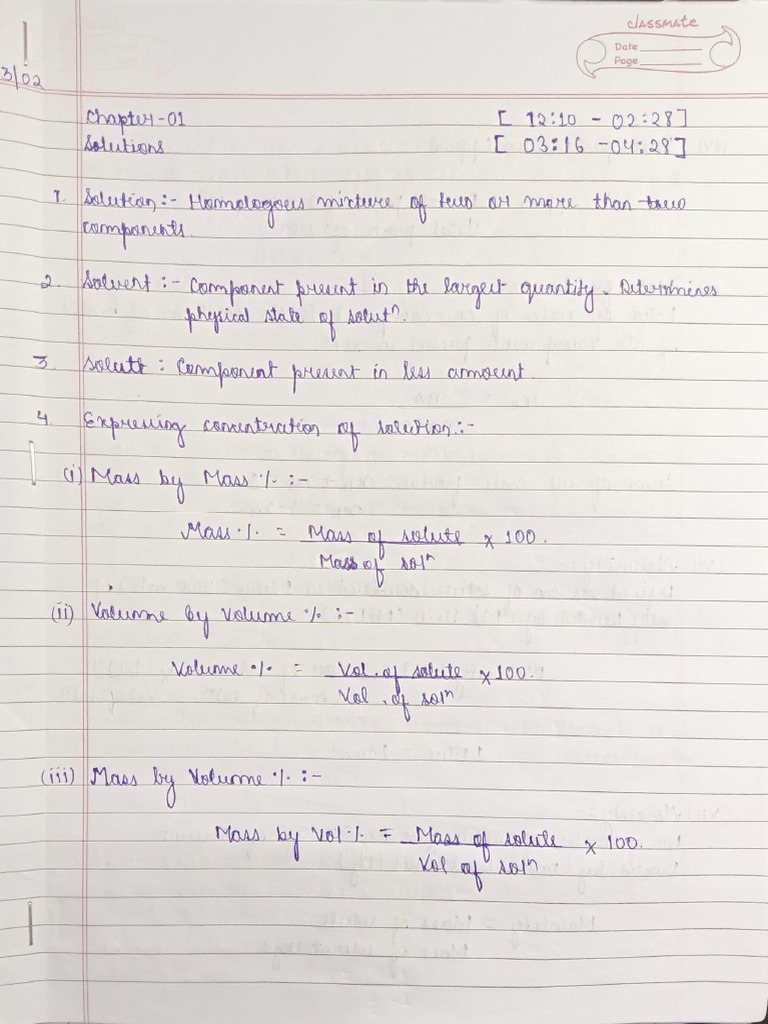 classmate
Date
Page
3/02
Chapter-01 [ 12:10 - 02:28]
Solutions [ 03:16 -04:28]
1. Solution:- Homologous mixture of two or more than two
components.
2. Solvent :- Component present in the largest quantity. Determines
physical state of solutⁿ.
3. Solute : Component present in less amount
4. Expressing concentration of solution:-
(i) Mass by Mass % :-
Mass % = Mass of solute × 100.
Mass of solⁿ
(ii) Volume by Volume % :-
Volume % = Vol. of solute × 100.
Vol. of solⁿ
(iii) Mass by Volume % :-
Mass by Vol % = Mass of solute × 100.
Vol of solⁿ